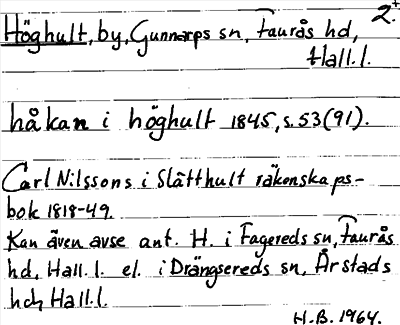 2.+
Höghult, by, Gunnarps sn, Faurås hd,
Hall. l.
håkan i höghult 1845, s. 53 (91).
Carl Nilssons i Slätthult räkenskaps-
bok 1818-49.
Kan även avse ant. H. i Fagereds sn, Faurås
hd, Hall. l. el. i Drängsereds sn, Årstads
hd, Hall. l.
H.B. 1964.